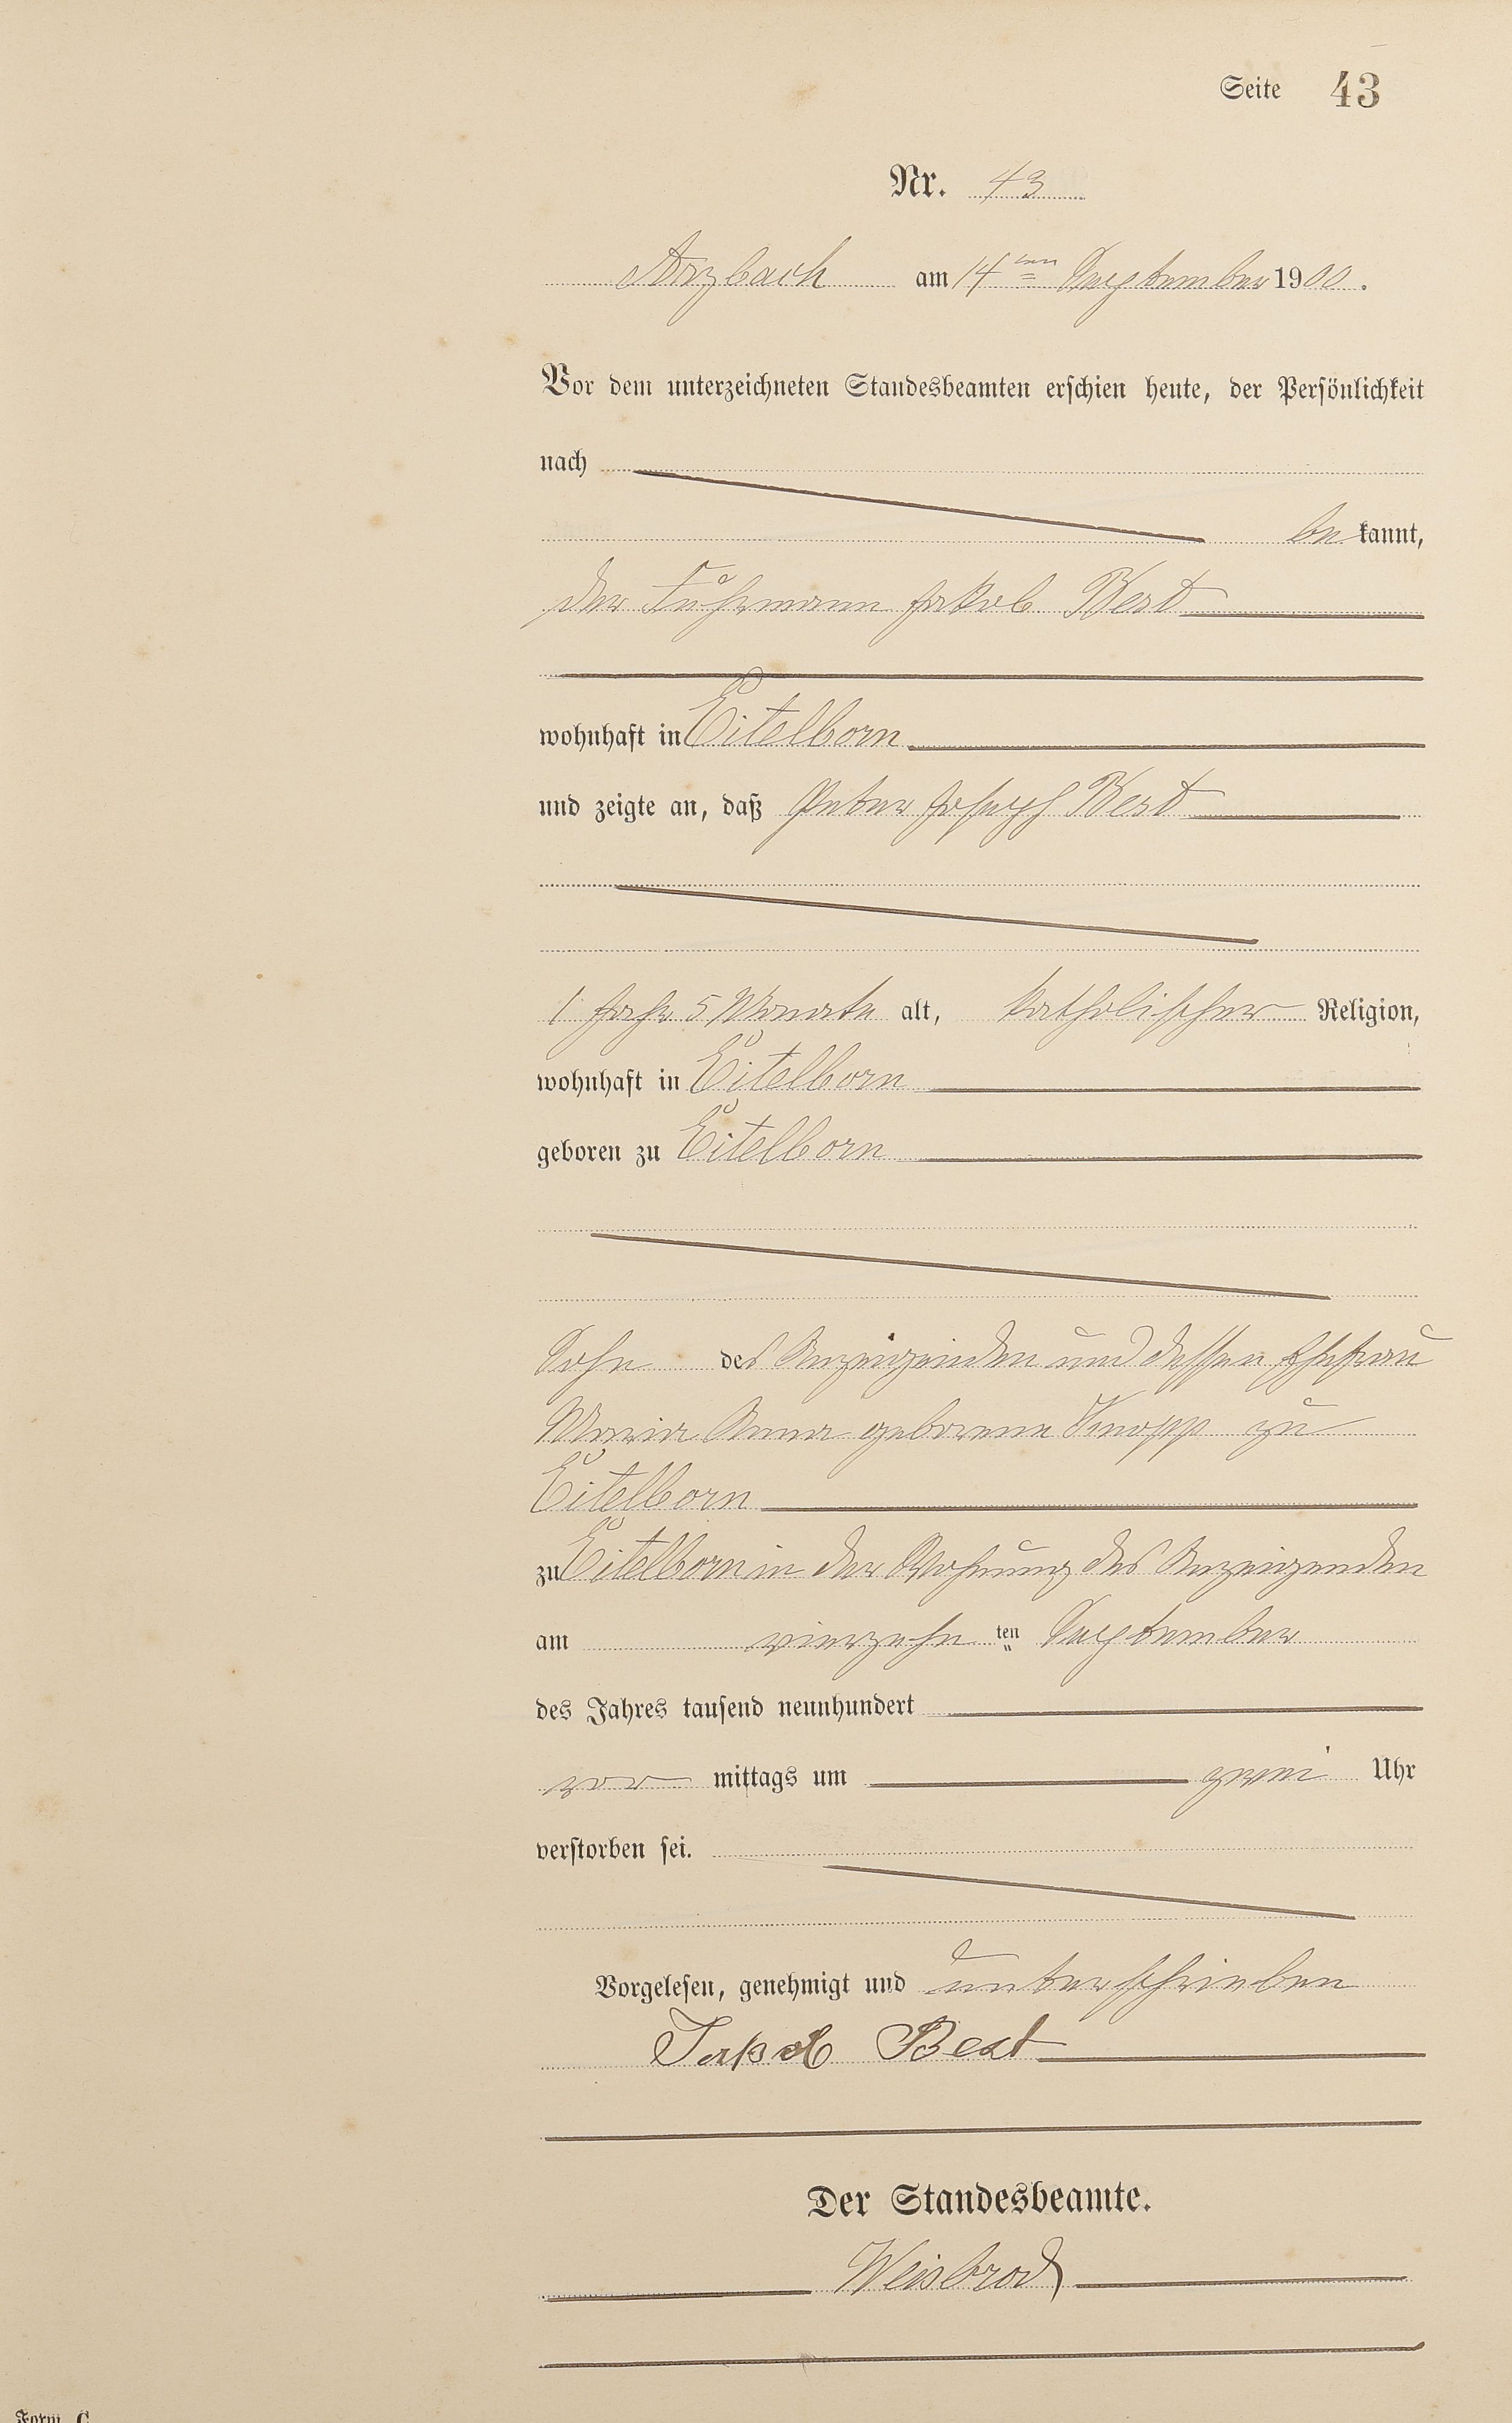 Seite 43
Nr. 43
Arzbach am 14ten September 1900.
Vor dem unterzeichneten Standesbeamten erschien heute, der Persönlichkeit
nach
bekannt,
der Fuhrmann Jakob Best
wohnhaft in Eitelborn
und zeigte an, daß Peter Joseph Best
1 Jahr 5 Monate alt, katholischer Religion,
wohnhaft in Eitelborn
geboren zu Eitelborn
Sohn des Anzeigenden und dessen Ehefrau
Maria Anna geborene Knopp zu
Eitelborn
zu Eitelborn in der Wohnung des Anzeigenden
am vierzehnten September
des Jahres tausend neunhundert
vor mittags um zwei Uhr
verstorben sei.
Vorgelesen, genehmigt und unterschrieben
Jakob Best
Der Standesbeamte.
Weisbrod
Form. C